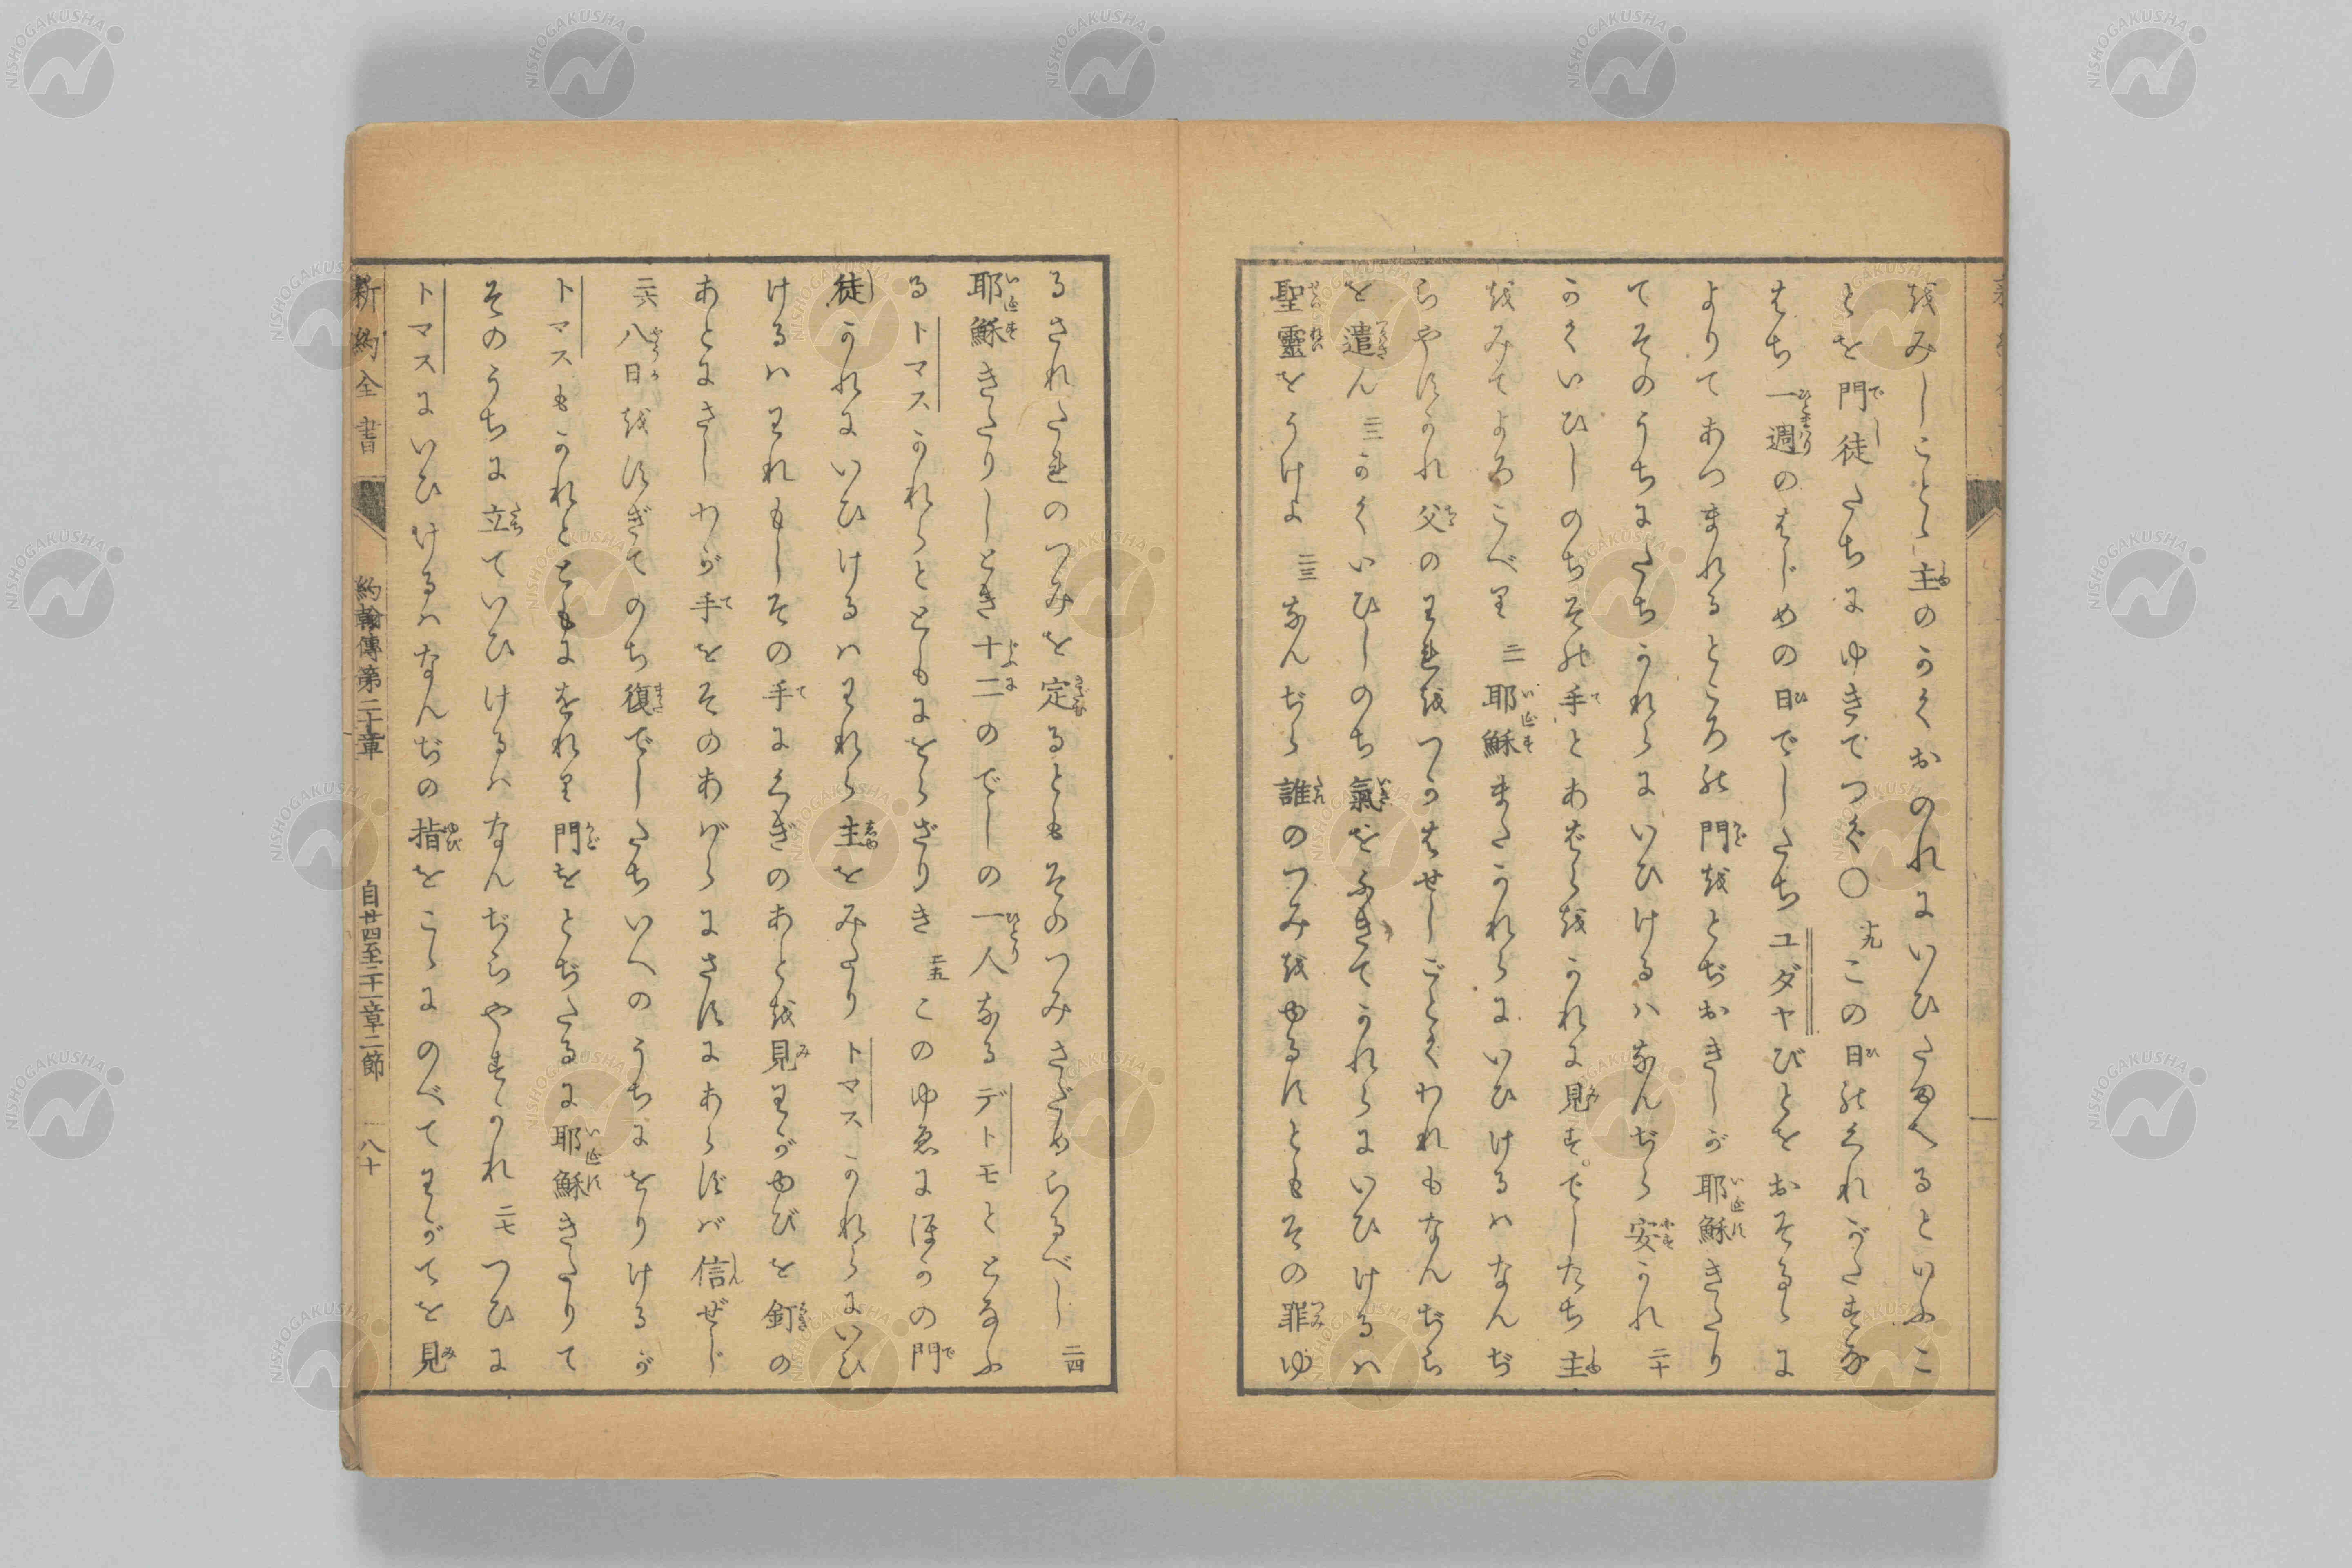 をみしことゝ主のかくおのれにいひたまへるといふこ
とを門徒たちにゆきてつぐ〇十九この日のくれがたすな
はち一週のはじめの日でしたちユダヤびとをおそるゝに
よりてあつまれるところの門をとぢおきしが耶穌きたり
てそのうちにたちかれらにいひけるハなんぢら安かれ二十
かくいひしのちその手とあばらをかれに見すでしたち主
をみてよろこべり二一耶穌またかれらにいひけるハなんぢ
らやすかれ父のわれをつかはせしごとくわれもなんぢら
を遣ん二二かくいひしのち氣をふきてかれらにいひけるハ
聖靈をうけよ二三なんぢら誰のつみをゆるすともその罪ゆ
るされたれのつみを定るともそのつみさだめらるべし二四
耶穌きたりしとき十二のでしの一人なるデトモととなふ
るトマスかれらとともにをらざりき二五このゆゑにほかの門
徒かれにいひけるハわれら主をみたりトマスかれらにいひ
けるハわれもしその手にくぎのあとを見わがゆびを釘の
あとにさしわが手をそのあばらにさすにあらずバ信ぜじ
二六八日をすぎてのち復でしたちいへのうちにをりけるが
トマスもかれとともにをれり門をとぢたるに耶穌きたりて
そのうちに立ていひけるハなんぢらやすかれ二七つひに
トマスにいひけるハなんぢの指をこゝにのべてわがてを見
新約全書 約翰傳第二十章 自廿四至二十一章二節 八十